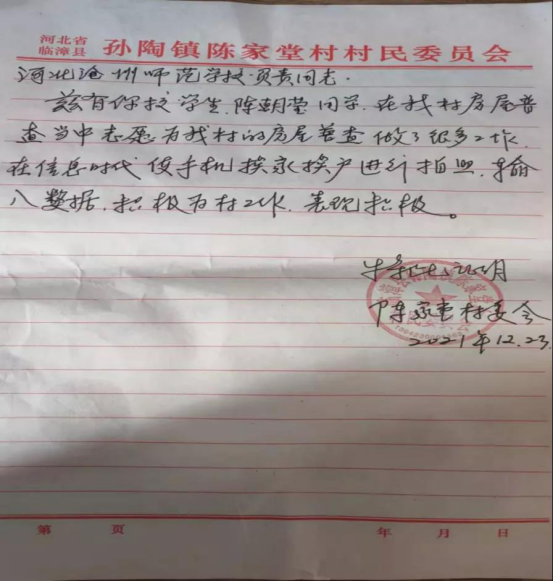 河北省
临漳县 孙陶镇陈家堂村村民委员会
河北沧州师范学校负责同志.
兹有你校学生.陈朝莹同学.在我村房屋普
查当中志愿为我村的房屋普查做了很多工作.
在信息时代使手机挨家挨户进行拍照.输
入数据.积极为村工作.表现积极。
特此证明
陈家堂村委会
2021年12.23
第 页 年 月 日